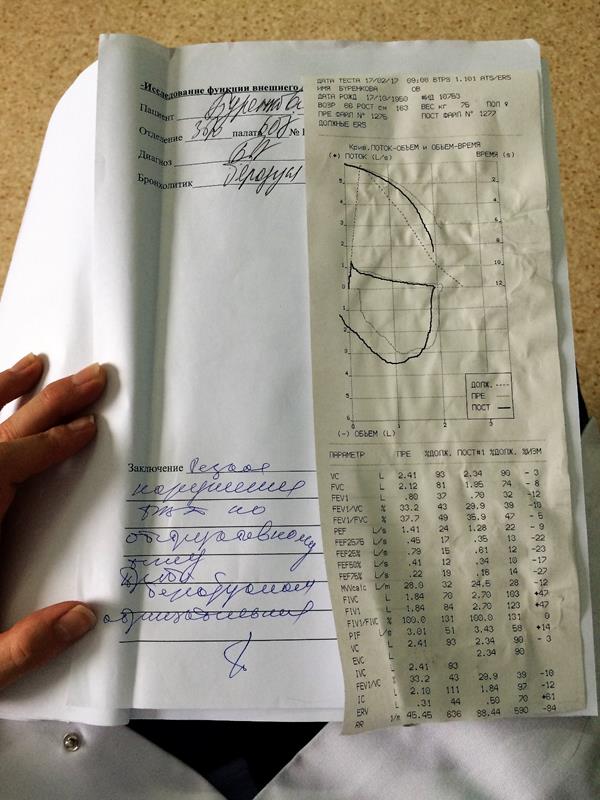 -Исследование функции внешнего
Пациент Буренкова
Отделение палата № 
Диагноз
Бронхолитик беродуал
Заключение Резкое
нарушение
по
обструктивному
типу
Проба
беродуалом
отрицательная
ДАТА ТЕСТА 17/02/17 09:08 ВТРЗ 1.101 ATS/ERS
ИМЯ БУРЕНКОВА ОВ
ДАТА РОЖД 17/10/1950 #ИД 10753
ВОЗР 66 РОСТ см 163 ВЕС кг 75 ПОЛ ♀
ПРЕ ФАРЛ N° 1276 ПОСТ ФАРЛ N° 1277
ДОЛЖНЫЕ ERS
Крив.ПОТОК-ОБЪЕМ и ОБЪЕМ-ВРЕМЯ
(+) ПОТОК (L/s) ВРЕМЯ (s)
5 2
4 4
3 6
2 8
1 10
0 12
1 2 3
2
3
4
5
6
(-) ОБЪЕМ (L)
ДОЛЖ.
ПРЕ
ПОСТ
ПАРАМЕТР ПРЕ %ДОЛЖ. ПОСТ#1 %ДОЛЖ. %ИЗМ
VC L 2.41 93 2.34 90 - 3
FVC L 2.12 81 1.95 74 - 8
FEV1 L .80 37 .70 32 -12
FEV1/VC % 33.2 43 29.9 39 -10
FEV1/FVC % 37.7 49 35.9 47 - 5
PEF L/s 1.41 24 1.28 22 - 9
FEF2575 L/s .45 17 .35 13 -22
FEF25% L/s .79 15 .61 12 -23
FEF50% L/s .41 12 .34 10 -17
FEF75% L/s .22 19 .16 14 -27
MVVcalc L/m 28.0 32 24.5 28 -12
FIVC L 1.84 70 2.70 103 +47
FIV1 L 1.84 84 2.70 123 +47
FIV1/FIVC % 100.0 131 100.0 131 0
PIF L/s 3.01 51 3.43 58 +14
VC L 2.41 93 2.34 90 - 3
EVC L 2.34 90
IVC L 2.41 93
FEV1/VC % 33.2 43 29.9 39 -10
IC L 2.10 111 1.84 97 -12
ERV L .31 44 .50 70 +61
RR 1/m 45.45 636 88.44 590 -84